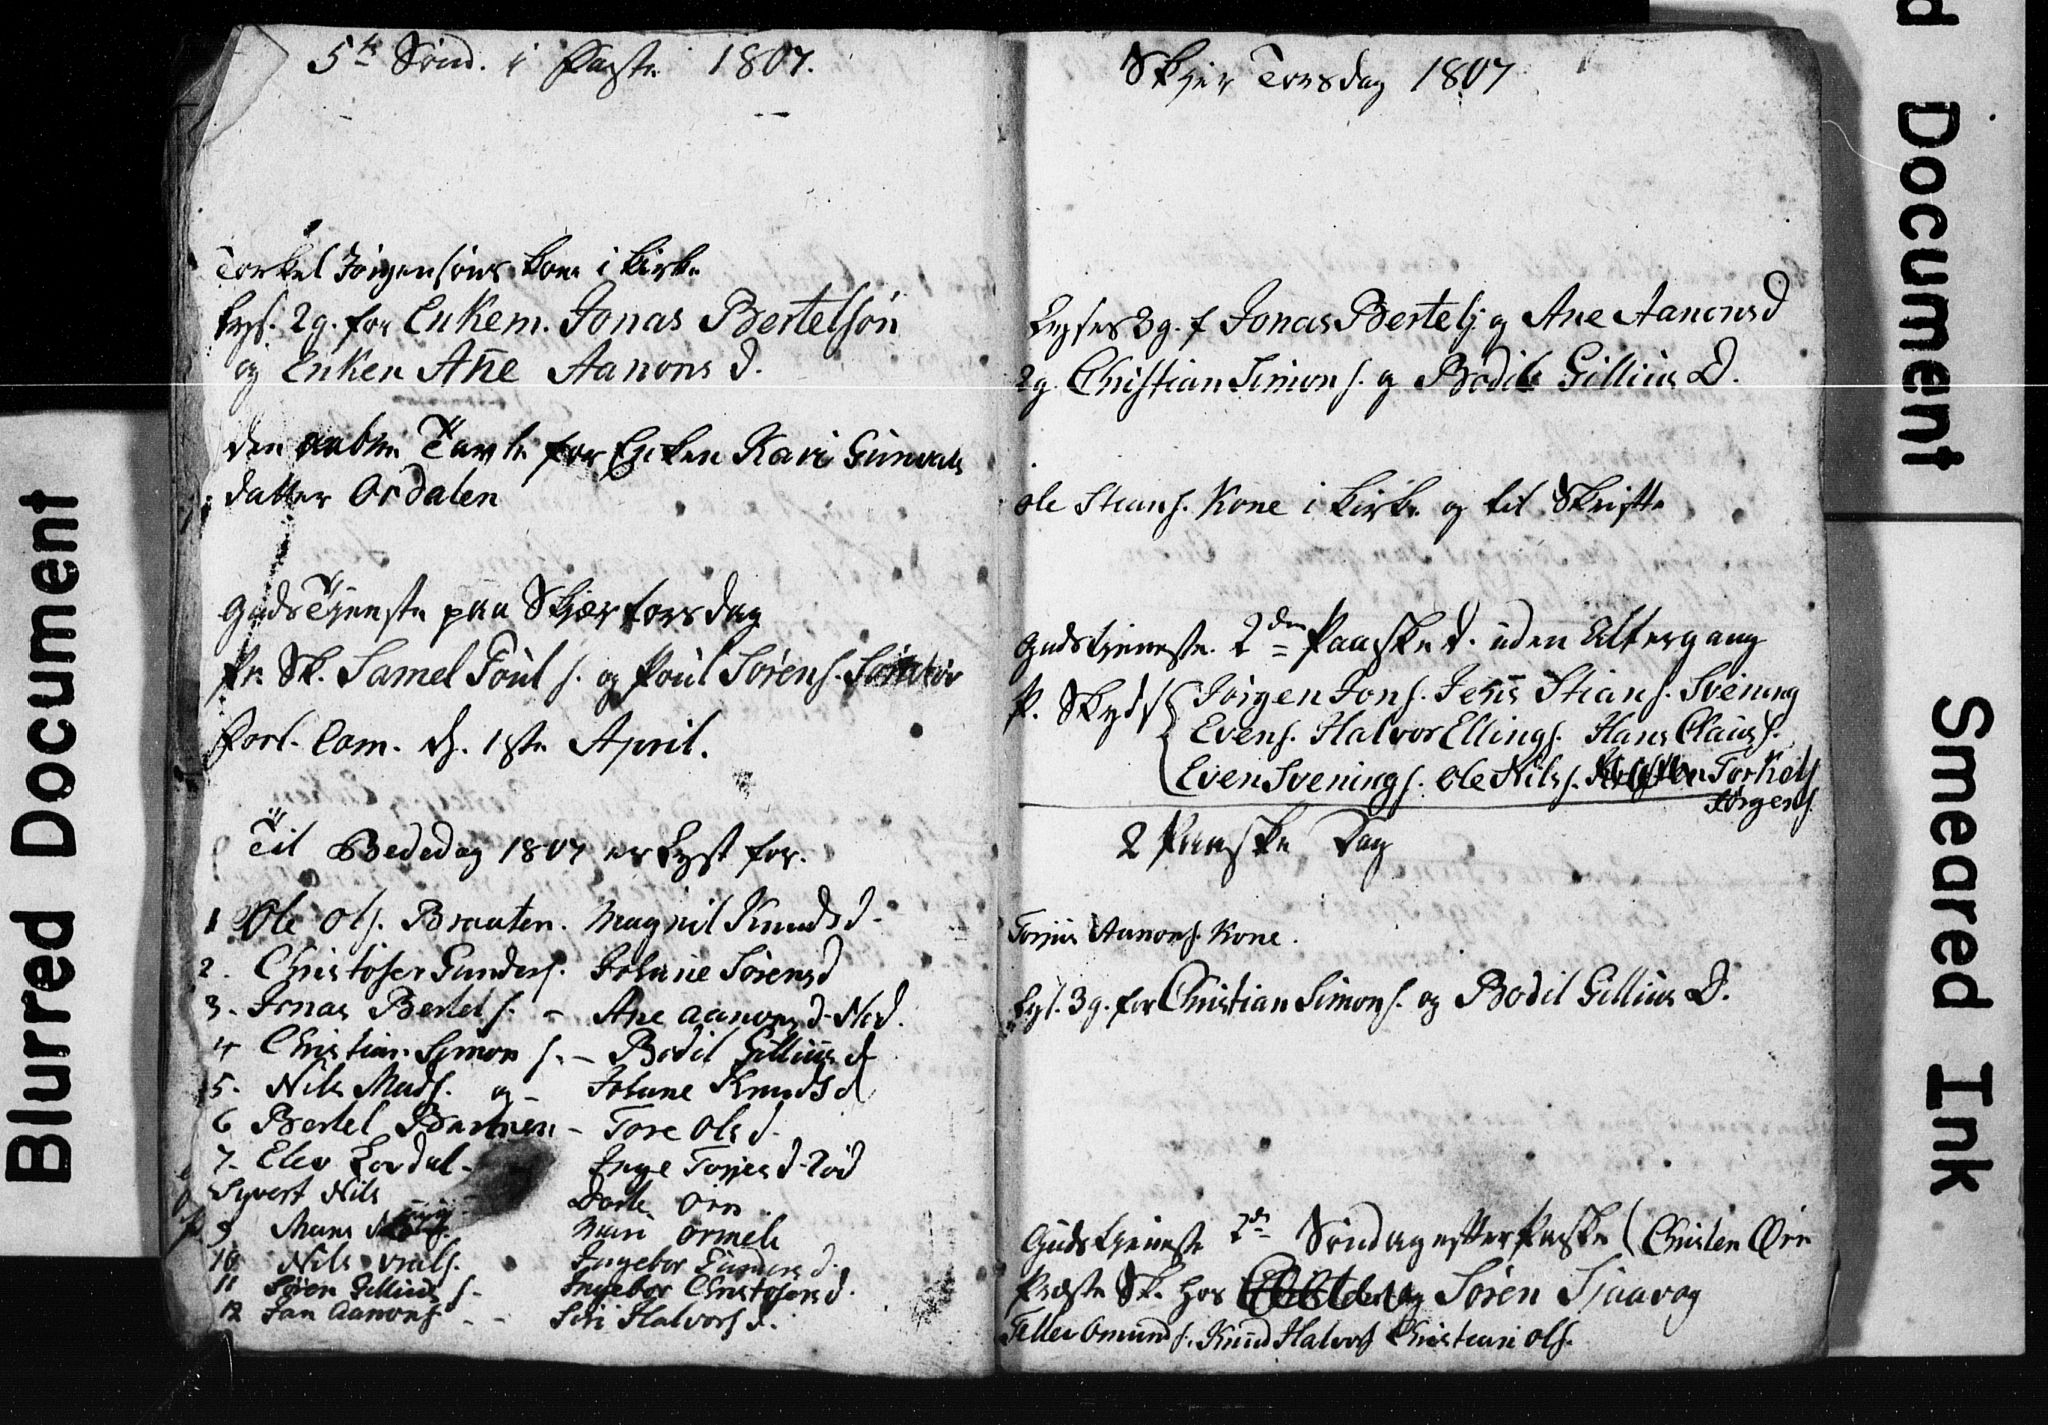 5te Sönd. i Faste 1807.
Torkel Jörgensöns kone i kirke
Lys. 2g. for Enkem. Jonas Bertelsön
og Enken Añe Aanons d.
den aabne Tavle for Enken Kari Gunvals
datter Ordalen
Guds Tjeneste paa Skjærtorsdag
Pr. Sk. Samel Poul s. og Poul Sörens.
Forl. Com. d. 1ste April.
Til Bededag 1807 er Lyst for.
1 Ole Ols. Braaten. Magnil Knuds d.
2. Christofer Gunders. Johane Sörens d
3. Jonas Bertels. - Ane Aanons d.
4 Christian Symon s. - Bodil Gillius d
5. Nils Mads. og - Johane Knuds d
6 Bertel - Tore Ols d.
7. Elev Lovdal - Inge Torjes d.
Syvert Nils Dorte Örn
9 Mari
10 Nils Ingebor Gunders d.
11 Sören Gillius s. - Ingebor Christofers d.
12 Jan Aanons - - Siri Halvors d.
Skjer Torsdag 1807
Lyses 3g. f Jonas Bertels. og Ane Aanons d
2g. Christian Simon s. og Bodil Gillius D.
Ole Stians. Kone i kirke og til Skrifte
Gudstjeneste 2den Paaske d. uden Altergang
P. Skyds Jörgen Jons. Jens Stians. Svening
Evens. Halvor Ellings. Hans Claus s.
Even Svenings. Ole Nils s. Torkels
Jörgens
2 Paaske Dag
Torjus Aanons. Kone.
Lys. 3g. for Christian Simons. og Bodil Gillius D.
Gudstjeneste 2den Söndag efter Paaske Christen Örn
Præste Sk. hos Sören Tjaavog
Tellev Omunds. Knud Halvors Christian Ols.
Blurred Document
d Document
Smeared Ink